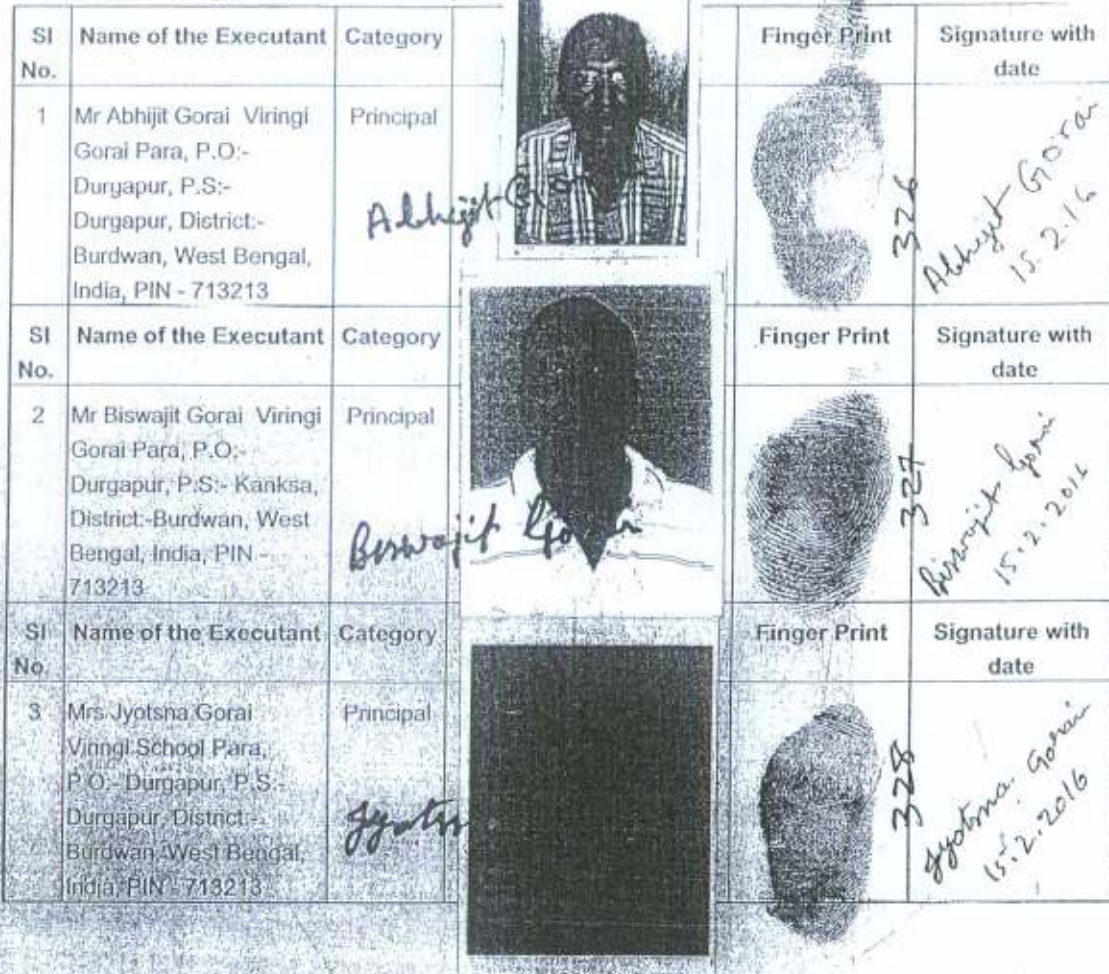 Sl No. Name of the Executant Category Finger Print Signature with date
1 Mr Abhijit Gorai Viringi Gorai Para, P.O:- Durgapur, P.S:- Durgapur, District:- Burdwan, West Bengal, India, PIN - 713213 Principal
Abhijit
326
Abhijit Gorai
15.2.16
Sl No. Name of the Executant Category Finger Print Signature with date
2 Mr Biswajit Gorai Viringi Gorai Para, P.O:- Durgapur, P.S:- Kanksa, District:-Burdwan, West Bengal, India, PIN - 713213 Principal
Biswajit Gorai
327
Biswajit Gorai
15.2.2016
Sl No. Name of the Executant Category Finger Print Signature with date
3 Mrs Jyotsna Gorai Viringi School Para, P.O:- Durgapur, P.S:- Durgapur, District:- Burdwan, West Bengal, India, PIN - 713213 Principal
328
Jyotsna Gorai
15.2.2016